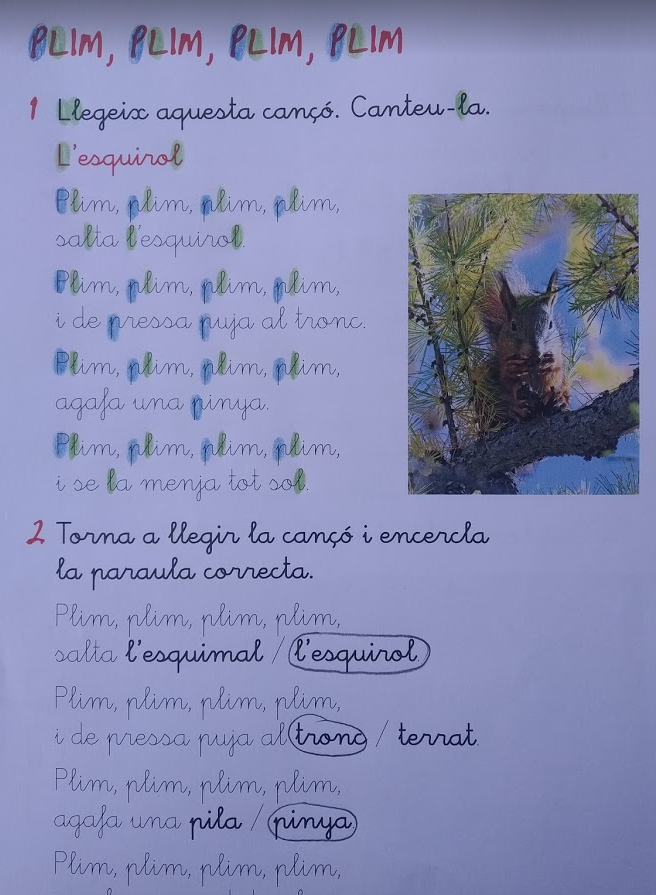 PLIM, PLIM, PLIM, PLIM
1 Llegeix aquesta cançó. Canteu-la.
L'esquirol
Plim, plim, plim, plim,
salta l'esquirol.
Plim, plim, plim, plim,
i de pressa puja al tronc.
Plim, plim, plim, plim,
agafa una pinya.
Plim, plim, plim, plim,
i se la menja tot sol.
2 Torna a llegir la cançó i encercla
la paraula correcta.
Plim, plim, plim, plim,
salta l'esquimal / l'esquirol.
Plim, plim, plim, plim,
i de pressa puja al tronc / terrat.
Plim, plim, plim, plim,
agafa una pila / pinya.
Plim, plim, plim, plim,